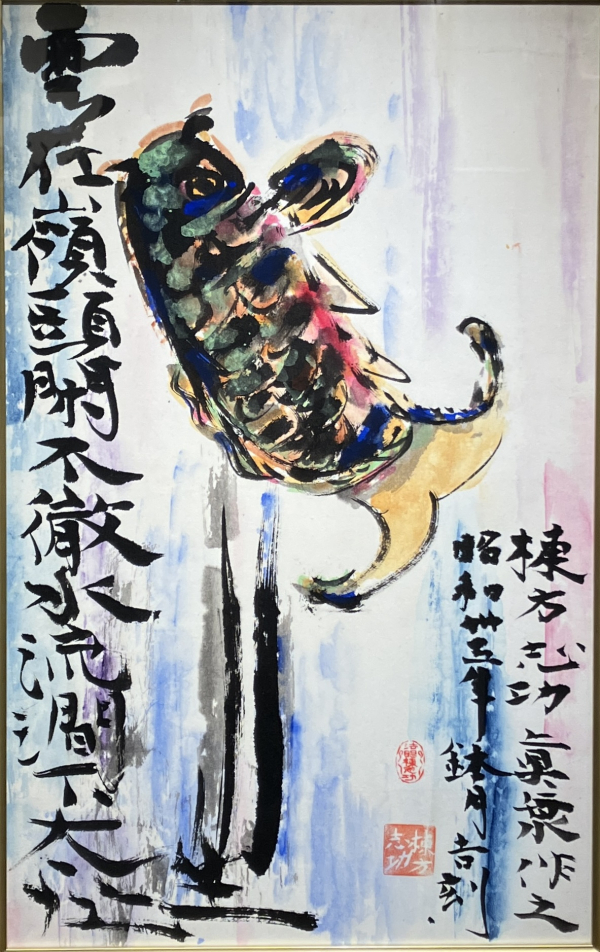 雲在嶺頭閒不徹水流澗下太忙
生
昭和卅五年 鉢月吉刻
棟方志功 作之
棟方
志功